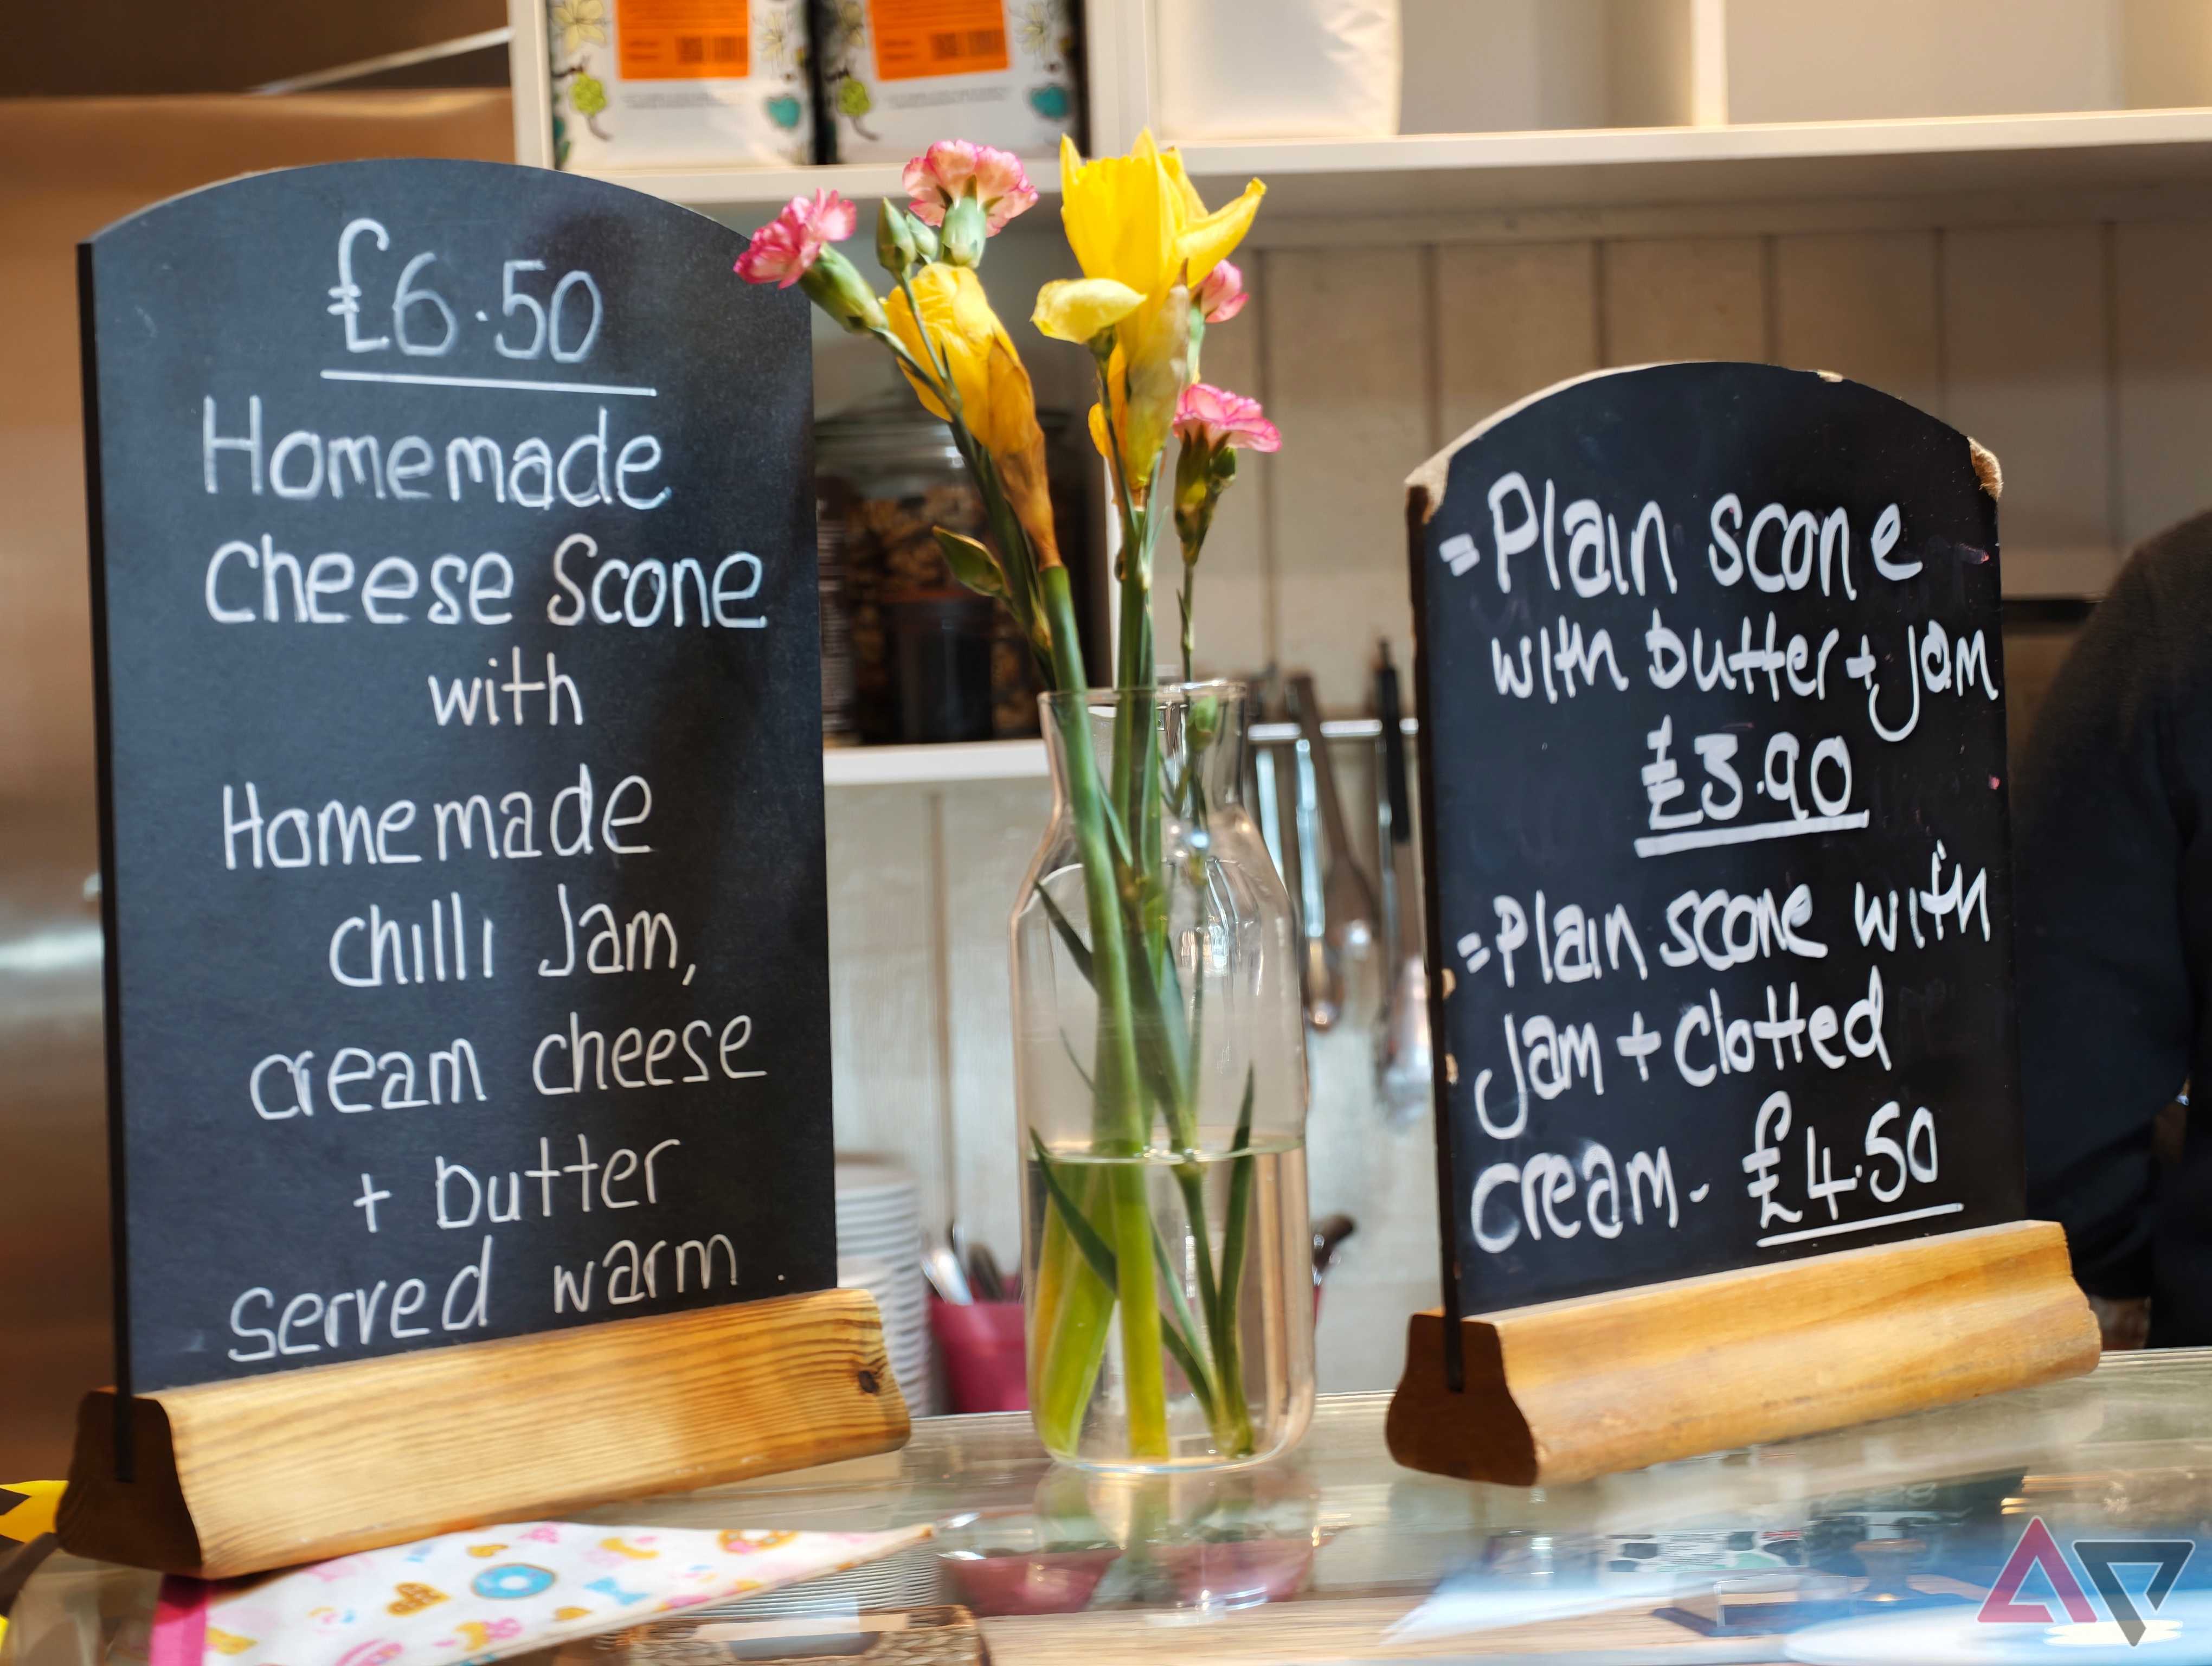 £6.50
Homemade
Cheese Scone
with
Homemade
chilli Jam,
cream cheese
+ butter
served warm.
= Plain scone
with butter + Jam
£3.90
= Plain scone with
Jam + Clotted
cream - £4.50